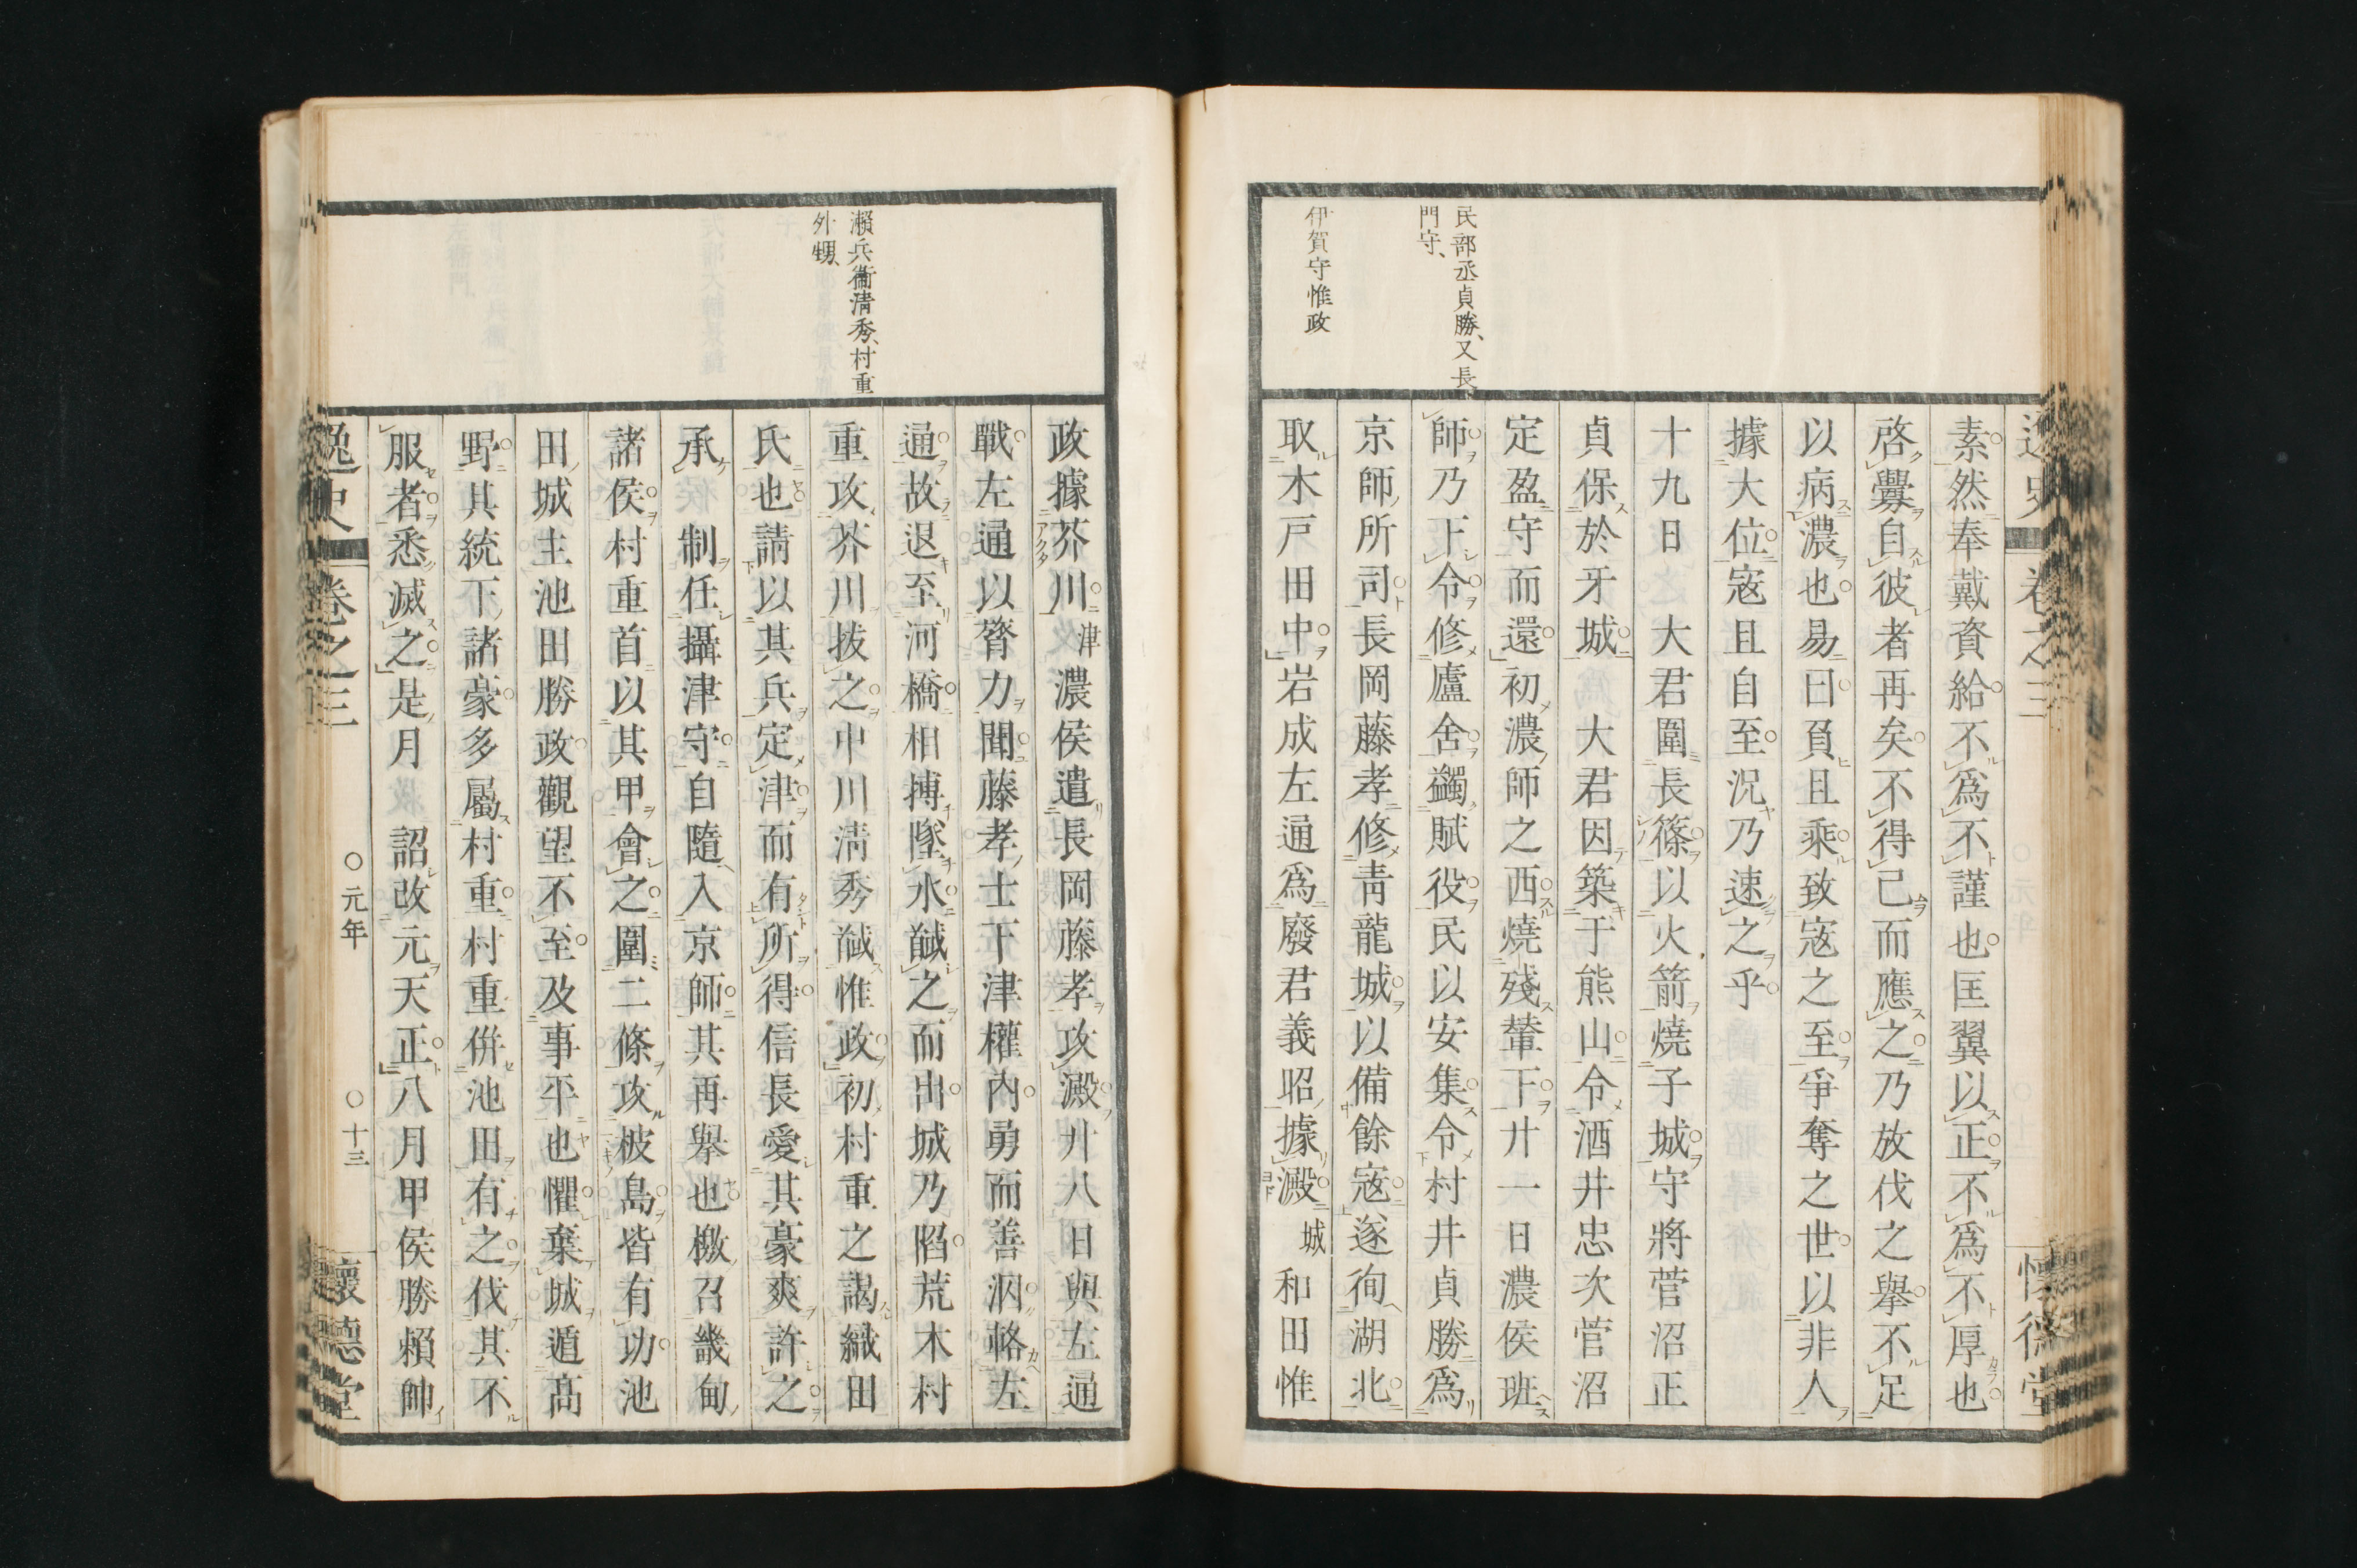 民部丞貞勝、又長
門守、
伊賀守惟政
逸史 卷之三 懷德堂
素然奉戴資給不爲不謹也匡翼以正不爲不厚也
啓釁自彼者再矣不得已而應之乃放伐之擧不足
以病濃也易曰負且乘致寇之至爭奪之世以非人
據大位寇且自至況乃速之乎
十九日 大君圍長篠以火箭燒子城守將菅沼正
貞保於牙城 大君因築于熊山令酒井忠次菅沼
定盈守而還初濃師之西燒殘輦下廿一日濃侯班
師乃下令修廬舍蠲賦役民以安集令村井貞勝爲
京師所司長岡藤孝修靑龍城以備餘寇遂徇湖北
取木戸田中岩成左通爲廢君義昭據澱城和田惟
瀨兵衞淸秀、村重
外甥、
政據芥川津濃侯遣長岡藤孝攻澱廿八日與左通
戰左通以膂力聞藤孝士下津權內勇而善泅輅左
通故退至河橋相搏墜水馘之而出城乃陷荒木村
重攻芥川拔之中川淸秀馘惟政初村重之謁織田
氏也請以其兵定津而有所得信長愛其豪爽許之
承制任攝津守自隨入京師其再擧也檄召畿甸
諸侯村重首以其甲會之圍二條攻槇島皆有功池
田城主池田勝政觀望不至及事平也懼棄城遁高
野其統下諸豪多屬村重村重倂池田有之伐其不
服者悉滅之是月 詔改元天正八月甲侯勝賴帥
逸史 卷之三 ○元年 ○十三 懷德堂